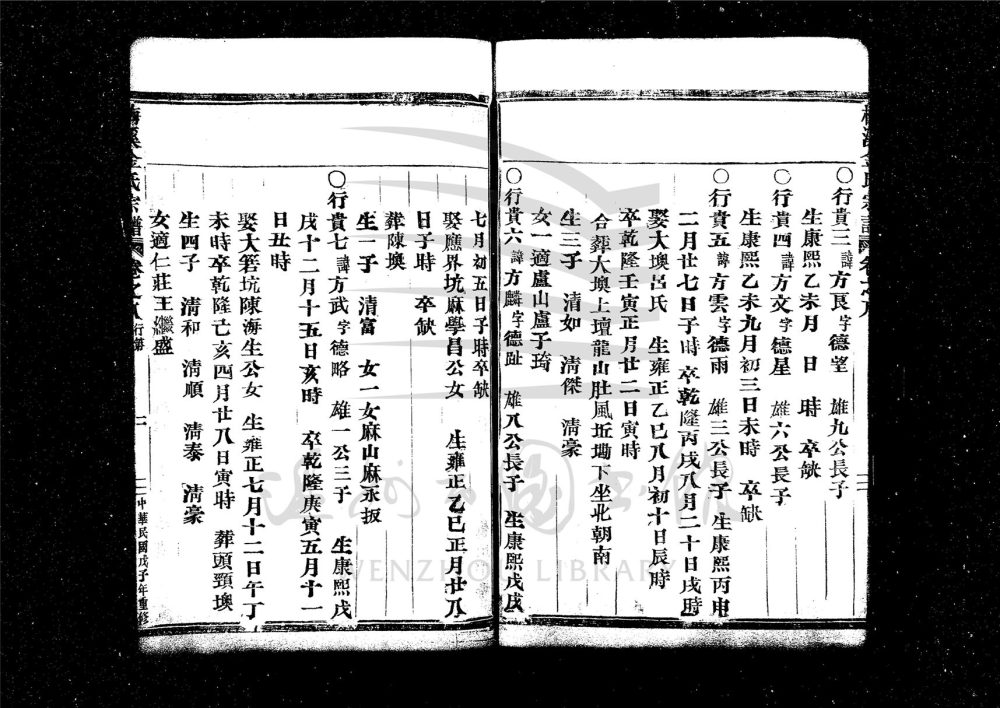 〇行貴三諱方良字德望 雄九公長子
生康熙乙未月 日 時 卒缺
〇行貴四諱方文字德星 雄六公長子
生康熙乙未九月初三日未時 卒缺
〇行貴五諱方雲字德雨 雄三公長子 生康熙丙申
二月廿七日子時 卒乾隆丙戌八月二十日戌時
娶大墺呂氏 生雍正乙巳八月初十日辰時
卒乾隆壬寅正月廿二日寅時
合葬大墺上壇龍山肚風坵墈下坐北朝南
生三子 清如 清傑 清豪
女一適盧山盧子琦
〇行貴六諱方麟字德趾 雄八公長子 生康熙戊戌
七月初五日子時卒缺
娶應界坑麻學昌公女 生雍正乙巳正月廿八
日子時 卒缺
葬陳墺
生一子 清富 女一女麻山麻永扳
〇行貴七諱方武字德略 雄一公三子 生康熙戊
戌十二月十五日亥時 卒乾隆庚寅五月十一
日丑時
娶大箬坑陳海生公女 生雍正七月十二日午丁
未時卒乾隆己亥四月廿八日寅時 葬頭頸墺
生四子 清和 清順 清泰 清豪
女適仁莊王繼盛
氏宗譜 卷之八 行第
中華民國戊子年重修
WENZHOU LIBRARY